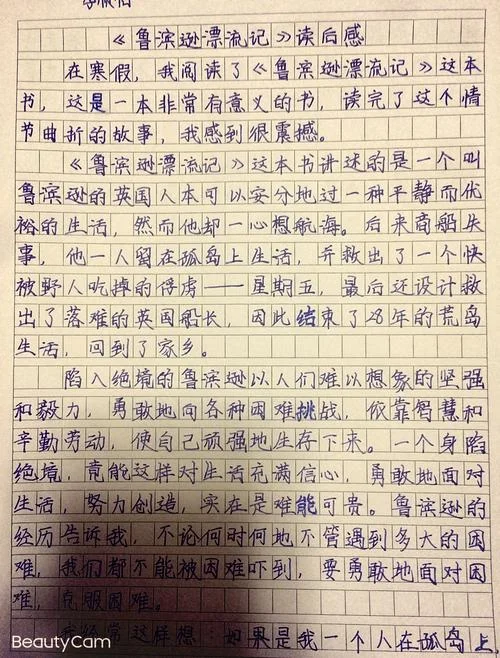 《鲁滨逊漂流记》读后感
在寒假，我阅读了《鲁滨逊漂流记》这本
书，这是一本非常有意义的书，读完了这个情
节曲折的故事，我感到很震撼。
《鲁滨逊漂流记》这本书讲述的是一个叫
鲁滨逊的英国人本可以安分地过一种平静而优
裕的生活，然而他却一心想航海。后来商船失
事，他一人留在孤岛上生活，并救出了一个快
被野人吃掉的俘虏——星期五，最后还设计救
出了落难的英国船长，因此结束了28年的荒岛
生活，回到了家乡。
陷入绝境的鲁滨逊以人们难以想象的坚强
和毅力，勇敢地向各种困难挑战，依靠智慧和
辛勤劳动，使自己顽强地生存下来。一个身陷
绝境，竟能这样对生活充满信心，勇敢地面对
生活，努力创造，实在是难能可贵。鲁滨逊的
经历告诉我，不论何时何地不管遇到多大的困
难，我们都不能被困难吓到，要勇敢地面对困
难，克服困难。
我经常这样想：如果是我一个人在孤岛上
BeautyCam